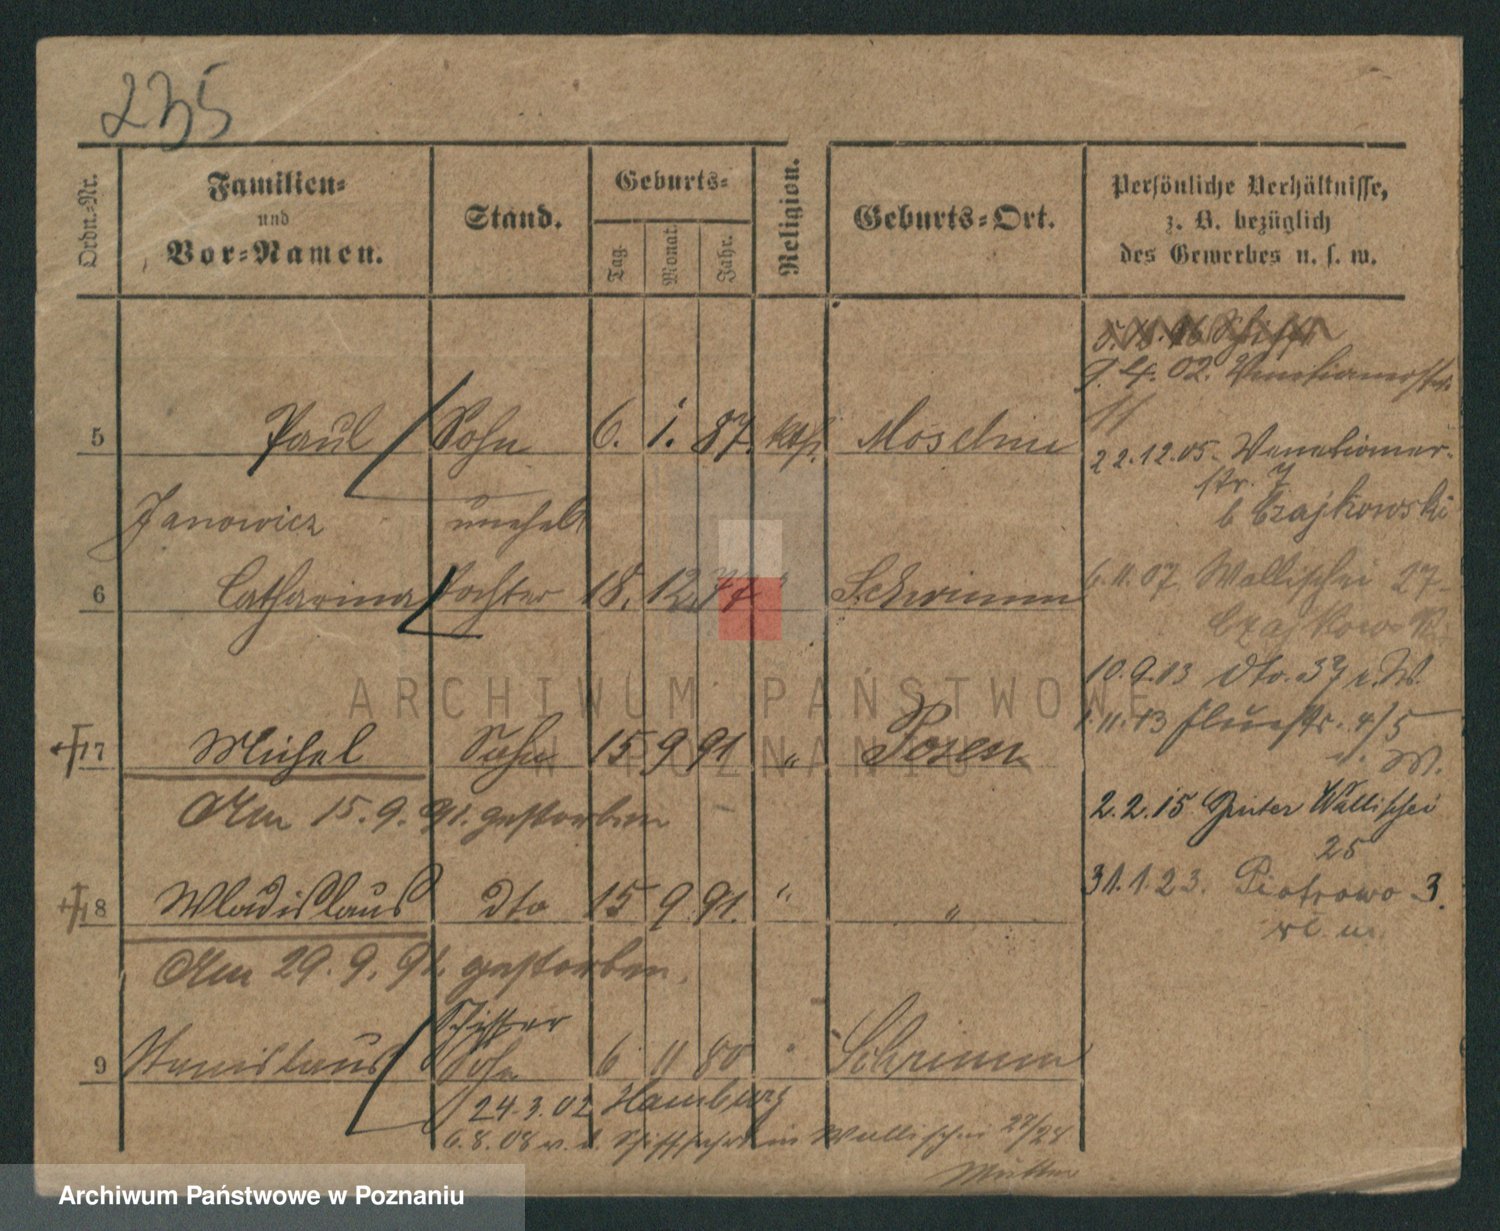 235
Ordn.-Nr.
Familien-
und
Vor-Namen.
Stand.
Geburts-
Tag.
Monat.
Jahr.
Religion.
Geburts-Ort.
Persönliche Verhältnisse,
z. B. bezüglich
des Gewerbes u. s. w.
9.4.02. Venetianerstr.
11
5 Paul Sohn 6. 1. 87. kath. Moschin
22.12.05. Venetianer-
str. 7
b Czajkowski
Janowicz unehel.
6 Catharina Tochter 18. 12. 77 Schrimm
6.11.07 Wallischei 27
Czajkow
10.9.13 dto. 37
1.11.13 4/5
7 Michel Sohn 15 9 91. " Posen
Am 15.9.91. gestorben
2.2.15. Hinter Wallischei
25
31.1.23. Piotrowo 3.
8 Wladislaus dto 15 9 91. " "
Am 29.9.91. gestorben.
Schiffer
9 Stanislaus Sohn 6 11 80 " Schrimm
24.3.02 Hamburg
6.8.08 v. d. Schifffahrt in Wallischei 27/28
Mutter
ARCHIWUM PAŃSTWOWE
W POZNANIU
Archiwum Państwowe w Poznaniu